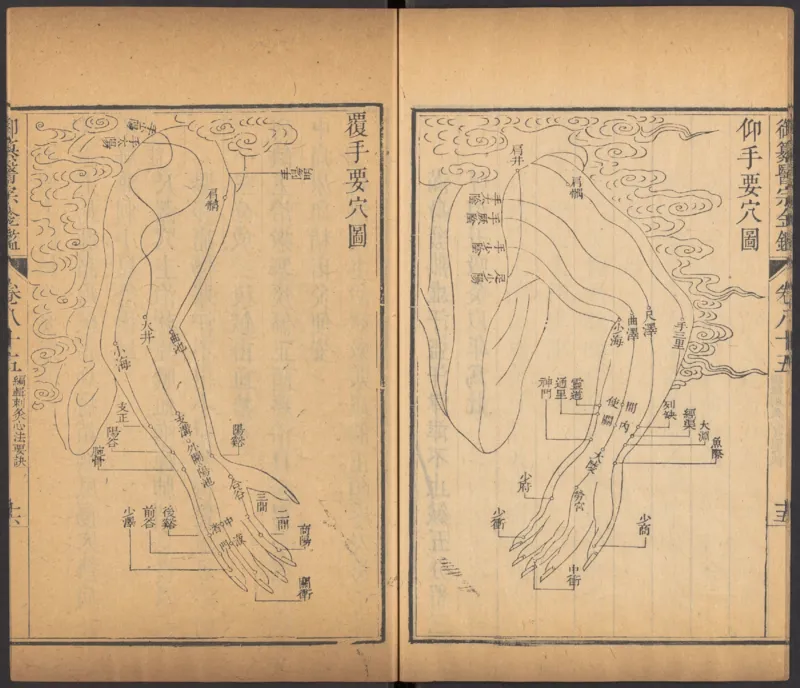 御纂醫宗金鑑
卷八十五
仰手要穴圖
肩井
肩髃
手太陰
手厥陰
手少陰
足少陽
手三里
尺澤
曲澤
少海
列缺
經渠
太淵
魚際
間使
內關
靈道
通里
神門
大陵
勞宮
少府
少衝
少商
中衝
覆手要穴圖
手少陽
手太陽
肩髃
天井
曲池
小海
支正
陽谷
腕骨
支溝
外關
陽池
陽谿
合谷
三間
二間
商陽
中渚
液門
後谿
前谷
少澤
關衝
御纂醫宗金鑑
卷八十五
編輯刺灸心法要訣